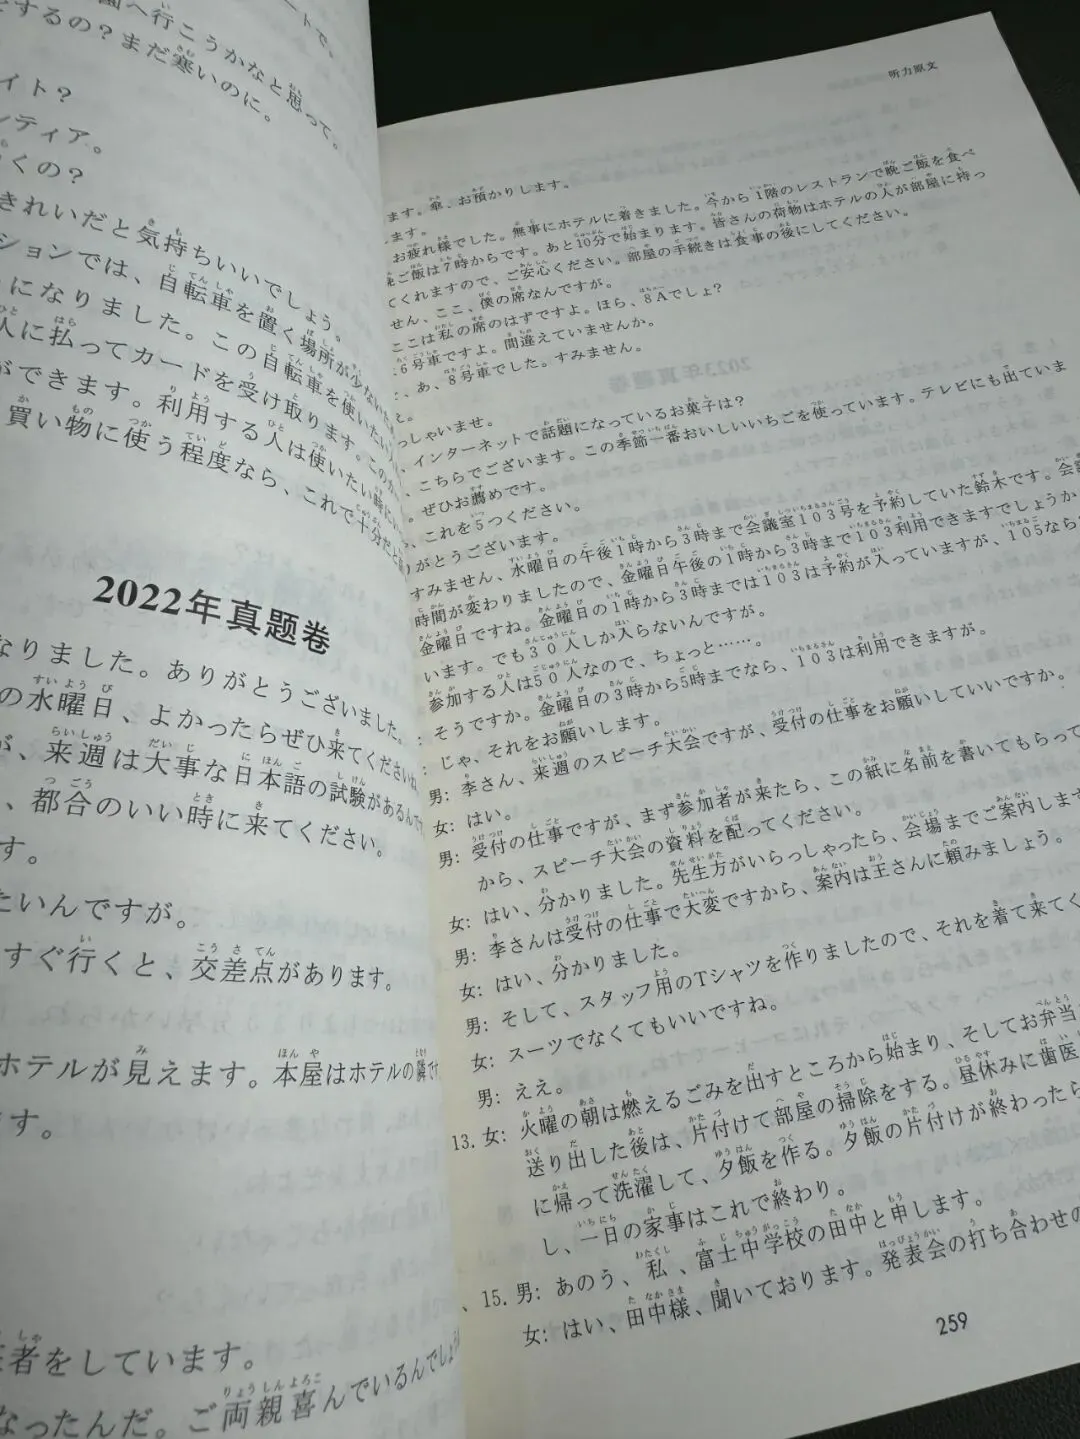 園へ行こうかなと思って。
するの？まだ寒いのに。
イト？
ンティア。
くの？
きれいだと気持ちいいでしょう。
ションでは、自転車を置く場所が少ない
になりました。この自転車を使いたい
人に払ってカードを受け取ります。この
ができます。利用する人は使いたい時に
買い物に使う程度なら、これで十分だと
2022年真题卷
なりました。ありがとうございました。
の水曜日、よかったらぜひ来てくださいね
が、来週は大事な日本語の試験があるんで
、都合のいい時に来てください。
す。
たいんですが。
すぐ行くと、交差点があります。
ホテルが見えます。本屋はホテルの隣です
ます。
者をしています。
なったんだ。ご両親喜んでいるんでしょう
听力原文
ます。傘、お預かりします。
します。
お疲れ様でした。無事にホテルに着きました。今から1階のレストランで晩ご飯を食べ
晩ご飯は7時からです。あと10分で始まります。皆さんの荷物はホテルの人が部屋に持っ
てくれますので、ご安心ください。部屋の手続きは食事の後にしてください。
せん、ここ、僕の席なんですが。
ここは私の席のはずですよ。ほら、8Aでしょ？
6号車ですよ。間違えていませんか。
、あ、8号車でした。すみません。
え。
っしゃいませ。
、インターネットで話題になっているお菓子は？
、こちらでございます。この季節一番おいしいいちごを使っています。テレビにも出ていま
。ぜひお薦めです。
、これを5つください。
がとうございます。
すみません、水曜日の午後1時から3時まで会議室103号を予約していた鈴木です。会議
時間が変わりましたので、金曜日午後の1時から3時まで103利用できますでしょうか
金曜日ですね。金曜日の1時から3時までは103は予約が入っていますが、105なら
います。でも30人しか入らないんですが。
参加する人は50人なので、ちょっと……。
：そうですか。金曜日の3時から5時までなら、103は利用できますが。
：じゃ、それをお願いします。
男：李さん、来週のスピーチ大会ですが、受付の仕事をお願いしていいですか。
女：はい。
男：受付の仕事ですが、まず参加者が来たら、この紙に名前を書いてもらって
から、スピーチ大会の資料を配ってください。
女：はい、分かりました。先生方がいらっしゃったら、会場までご案内します
男：李さんは受付の仕事で大変ですから、案内は王さんに頼みましょう。
女：はい、分かりました。
男：そして、スタッフ用のTシャツを作りましたので、それを着て来てく
女：スーツでなくてもいいですね。
男：ええ。
13. 女：火曜の朝は燃えるごみを出すところから始まり、そしてお弁当
送り出した後は、片付けて部屋の掃除をする。昼休みに歯医
に帰って洗濯して、夕飯を作る。夕飯の片付けが終わったら
し、一日の家事はこれで終わり。
、15. 男：あのう、私、富士中学校の田中と申します。
女：はい、田中様、聞いております。発表会の打ち合わせの
259